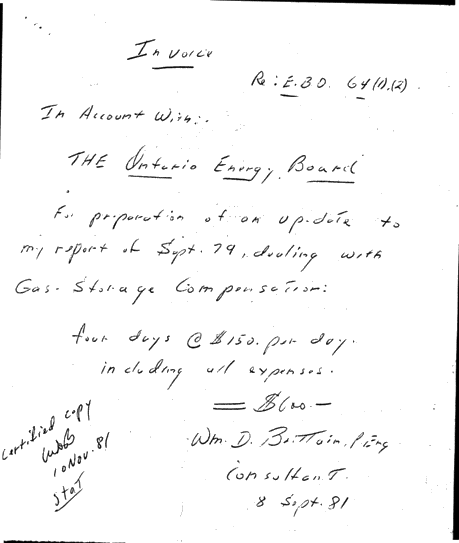 Invoice
Re: E.B.O. 64(1),(2).
In Account With:-
THE Ontario Energy Board
For preparation of an up-date to
my report of Sept. 79, dealing with
Gas-Storage Compensation:
four days @ $150. per day.
including all expenses.
= $600.—
Wm. D. Brittain, P.Eng
Consultant.
8 Sept. 81
Certified copy
WDB
10 Nov. 81
Stat